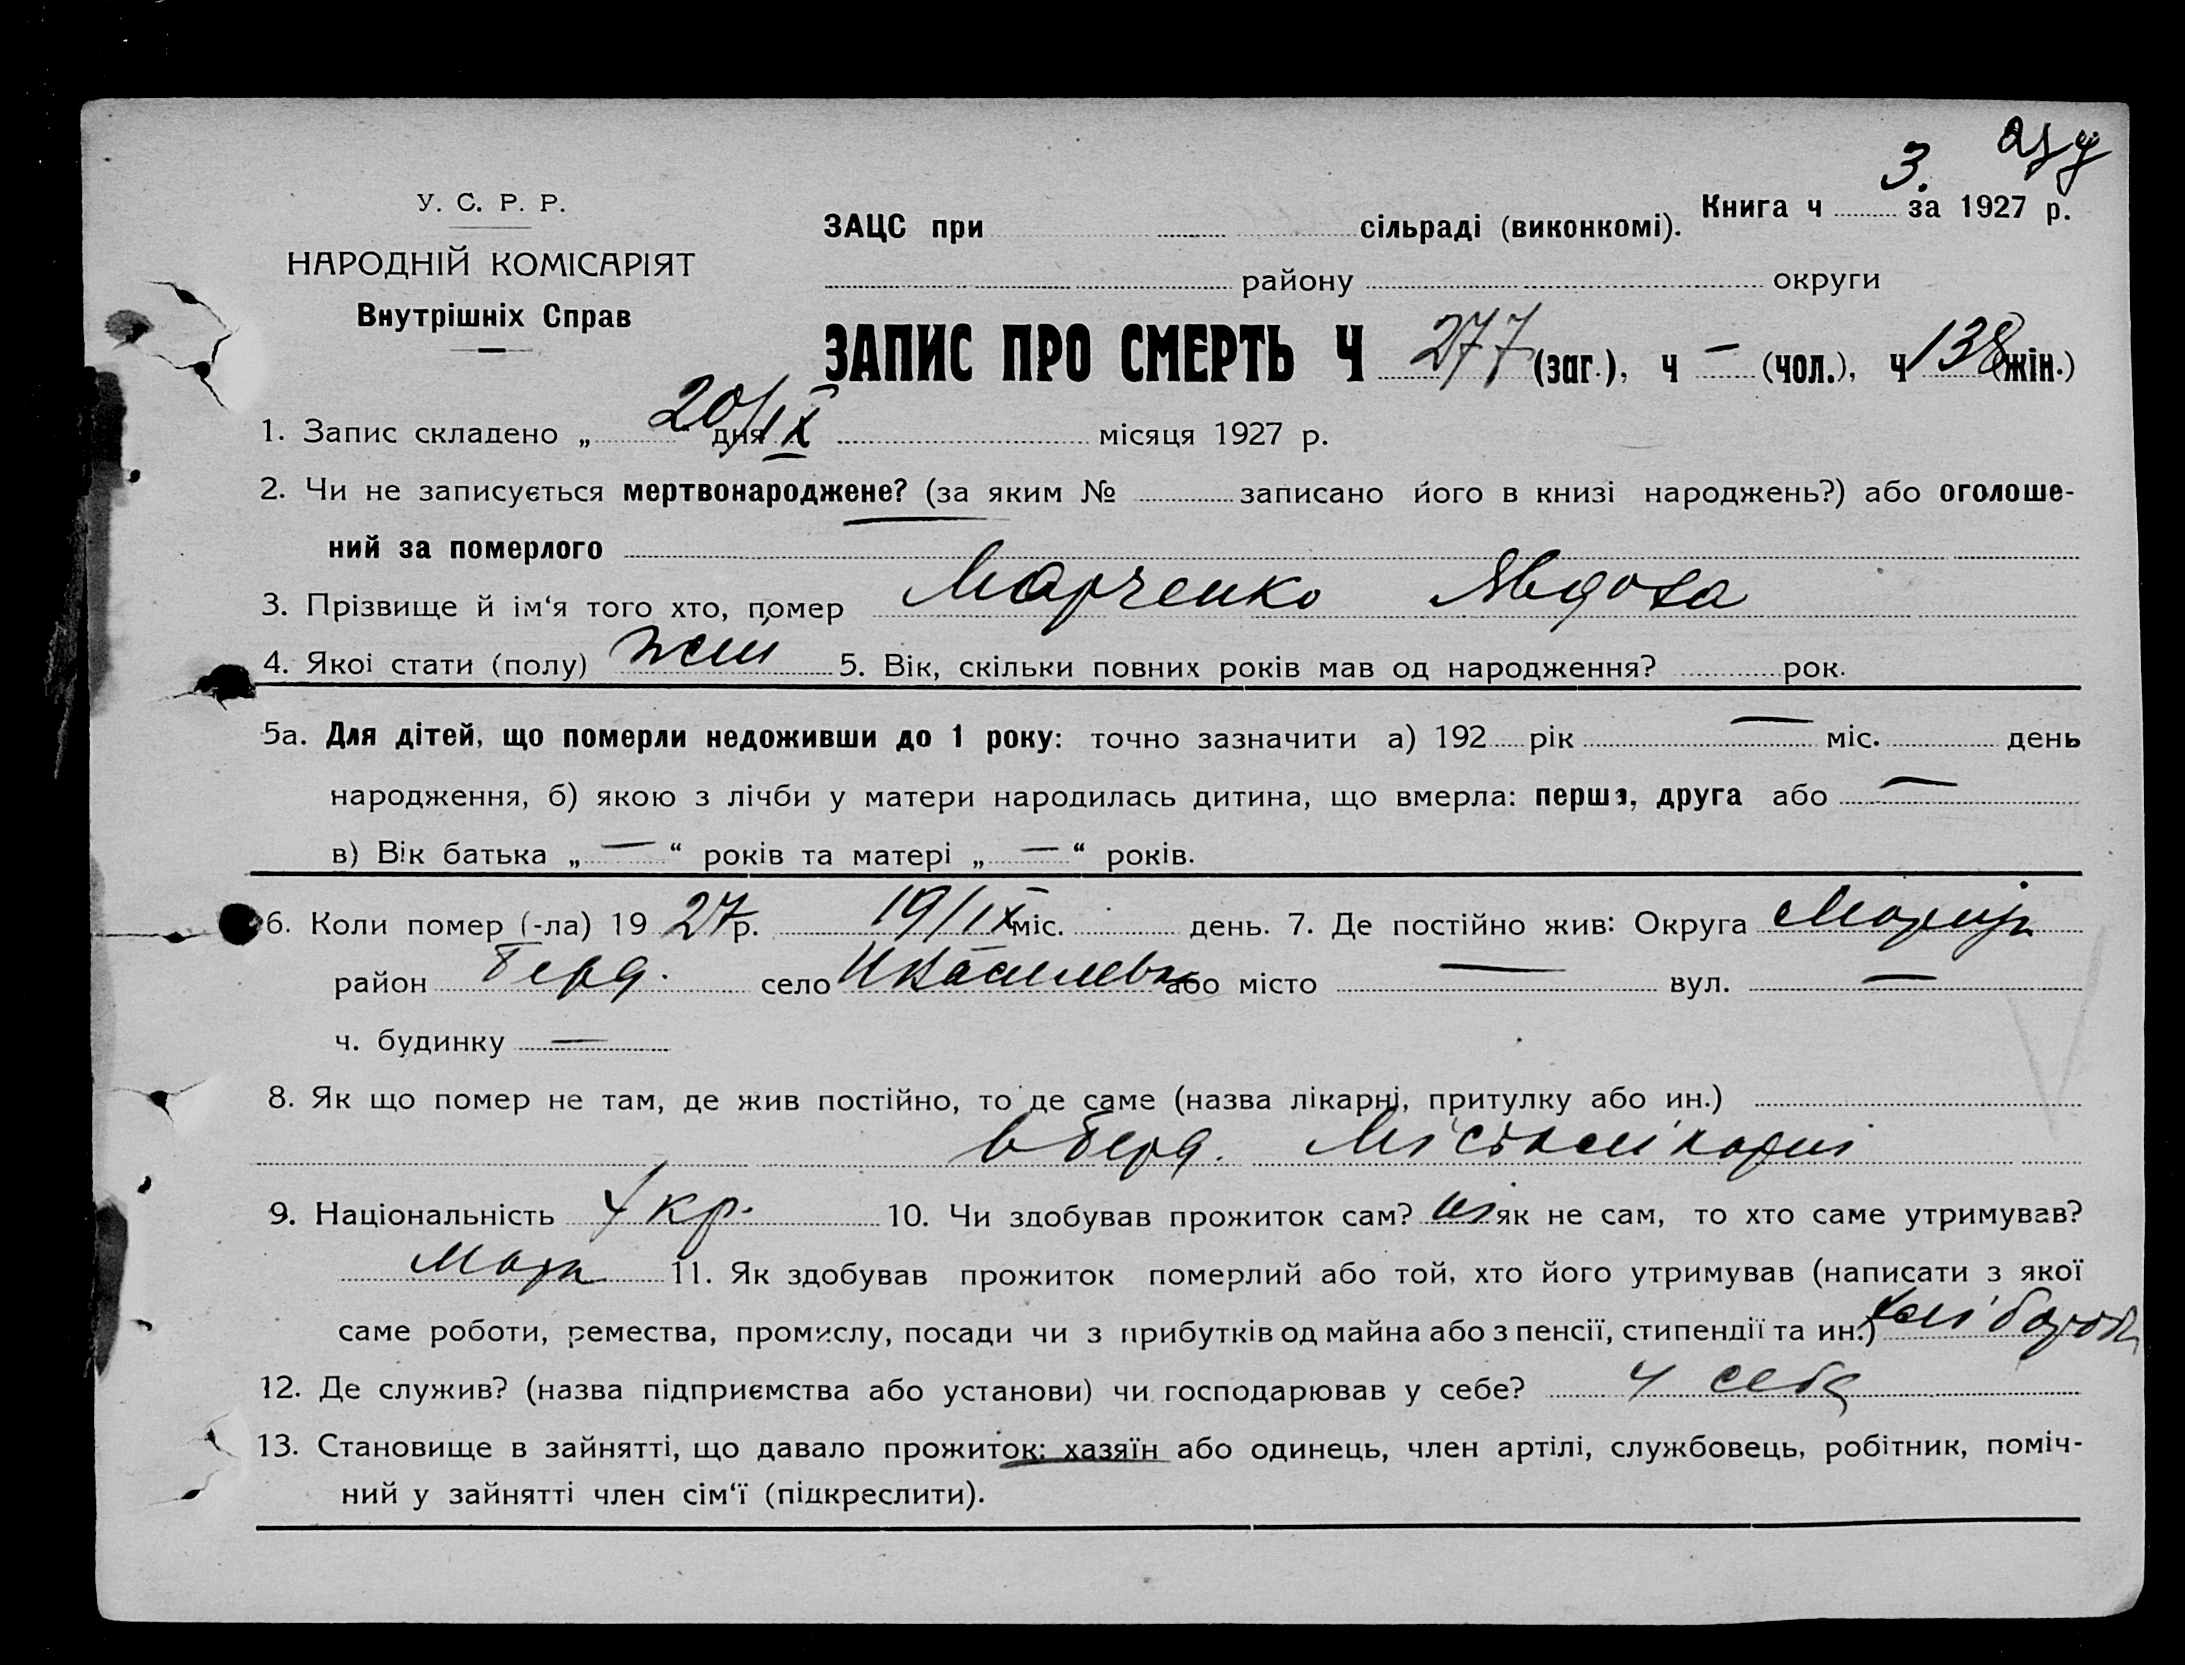 3.
У. С. Р. Р.
НАРОДНІЙ КОМІСАРІЯТ
Внутрішніх Справ
Книга ч за 1927 р.
ЗАЦС при сільраді (виконкомі).
району округи
ЗАПИС ПРО СМЕРТЬ Ч 277 (заг.), ч — (чол.), ч 138 (жін.)
1. Запис складено „ 20/IX “ дня місяця 1927 р.
2. Чи не записується мертвонароджене? (за яким № записано його в книзі народжень?) або оголоше-
ний за померлого
3. Прізвище й ім‘я того хто, помер Марченко Явдоха
4. Якоі стати (полу) жін 5. Вік, скільки повних років мав од народження? рок.
5а. Для дітей, що померли недоживши до 1 року: точно зазначити а) 192 рік — міс. день
народження, б) якою з лічби у матери народилась дитина, що вмерла: перша, друга або —
в) Вік батька „ — “ років та матері „ — “ років.
6. Коли помер (-ла) 19 27 р. 19/IX міс. день. 7. Де постійно жив: Округа Маріюп
район Берд. село або місто — вул. —
ч. будинку —
8. Як що помер не там, де жив постійно, то де саме (назва лікарні, притулку або ин.)
в Берд. Міськлікарні
9. Національність Укр. 10. Чи здобував прожиток сам? ні як не сам, то хто саме утримував?
11. Як здобував прожиток померлий або той, хто його утримував (написати з якої
саме роботи, ремества, промислу, посади чи з прибутків од майна або з пенсії, стипендії та ин.) хлібороб
12. Де служив? (назва підприємства або установи) чи господарював у себе? у себе
13. Становище в зайнятті, що давало прожиток: хазяїн або одинець, член артілі, службовець, робітник, поміч-
ний у зайнятті член сім‘ї (підкреслити).